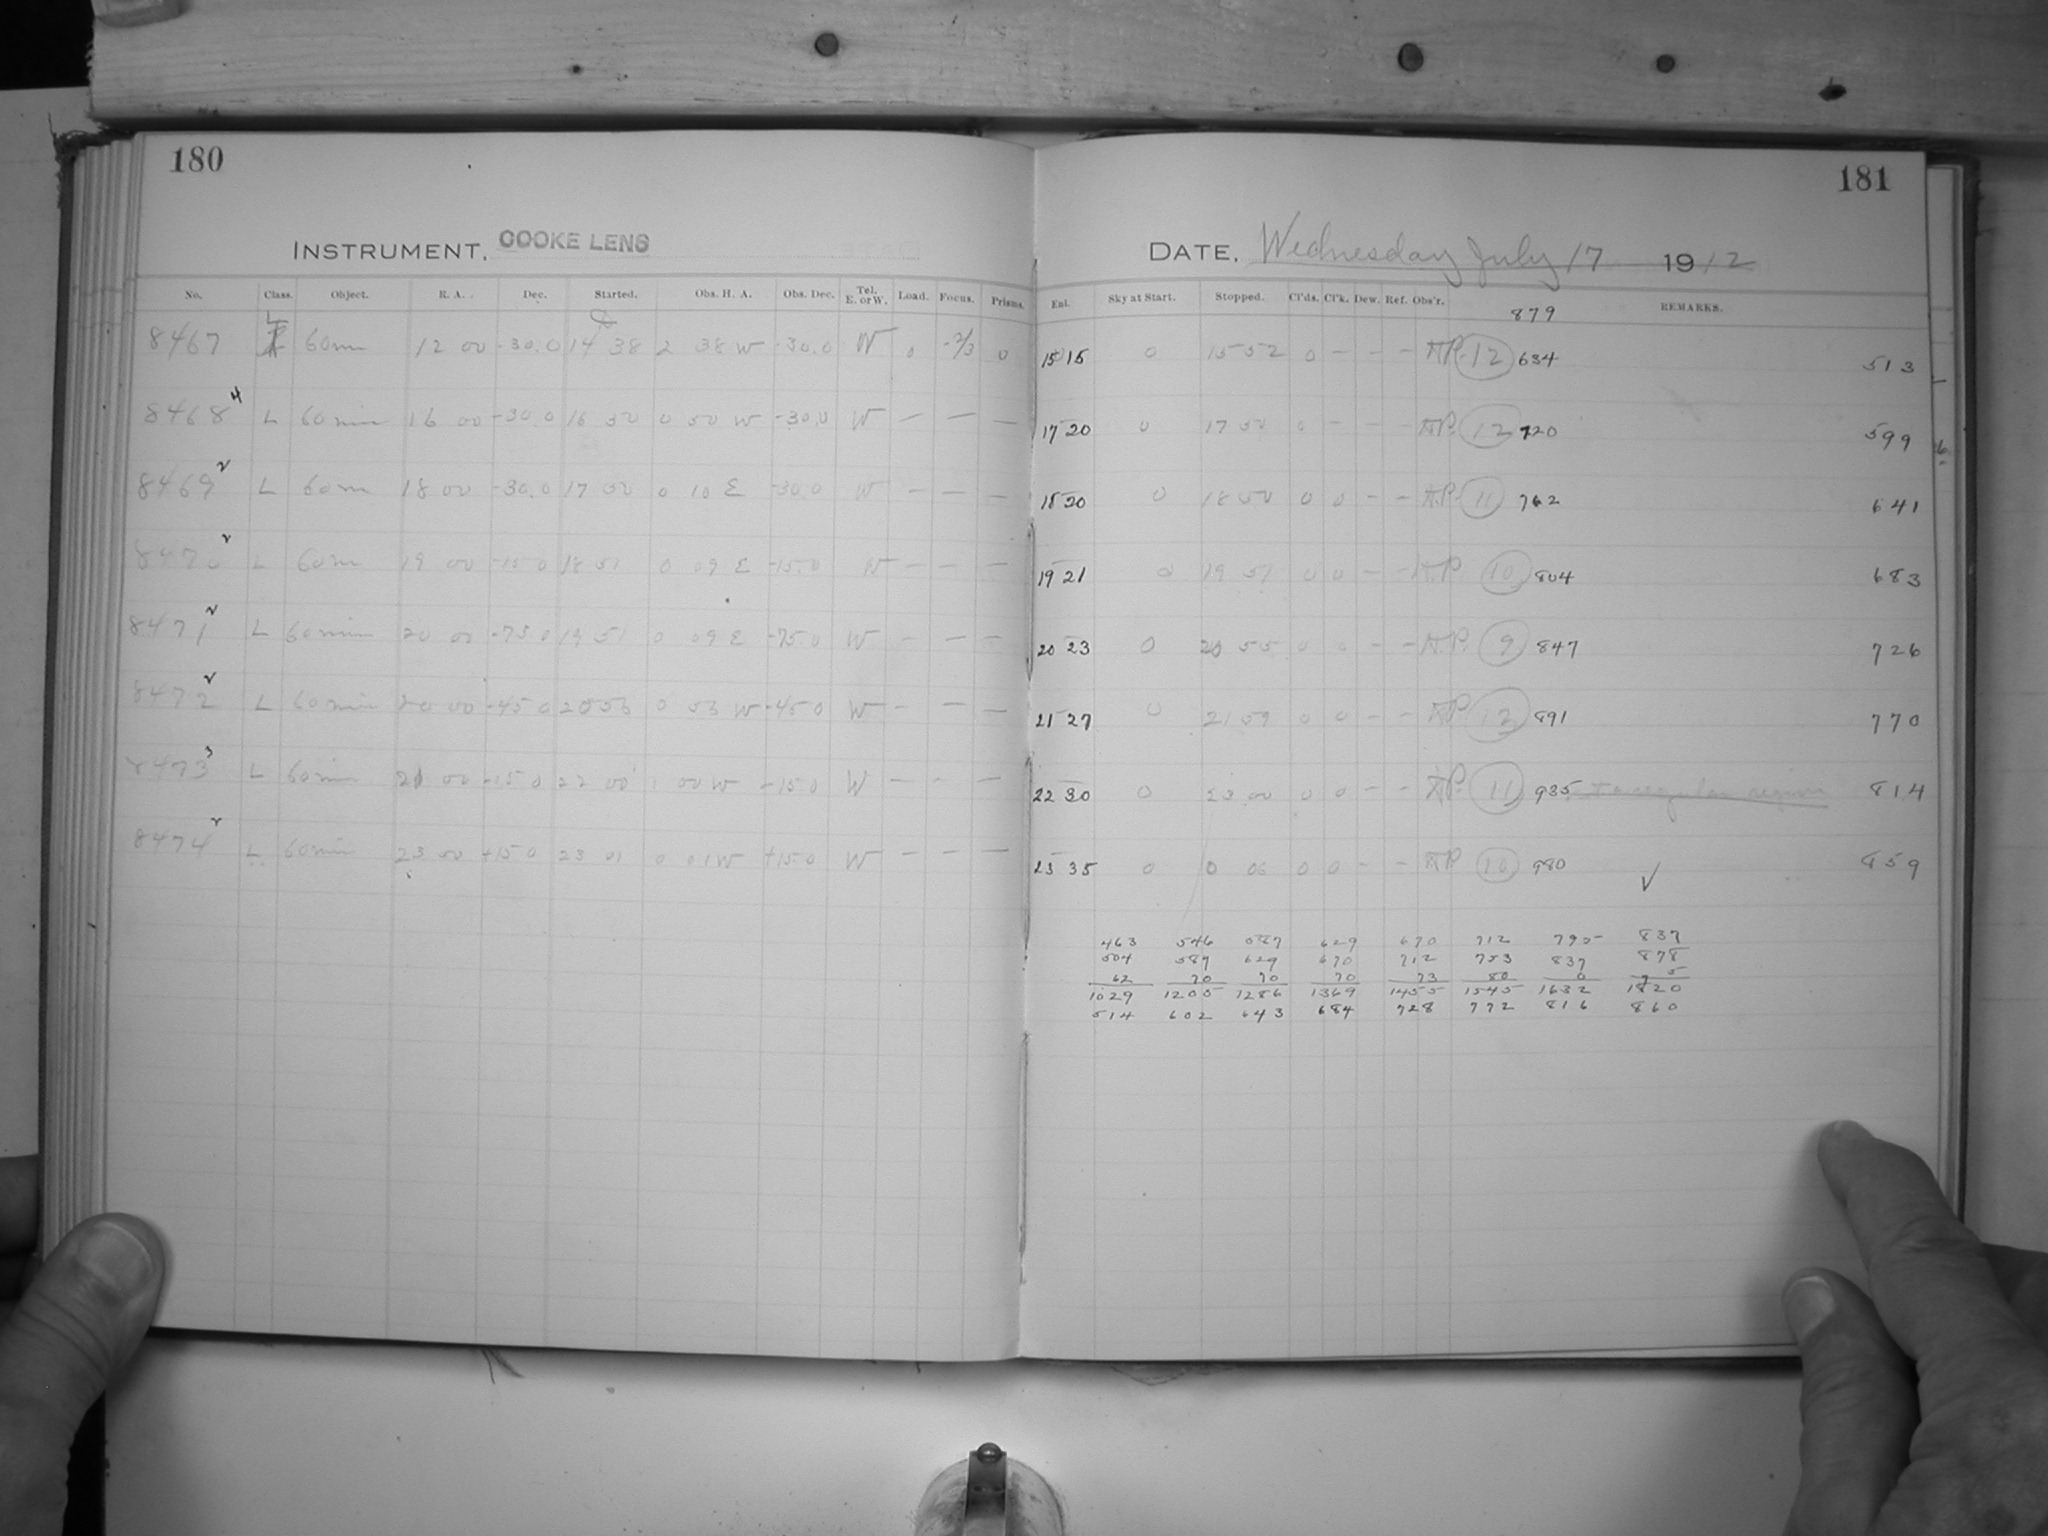 180
INSTRUMENT, COOKE LENS
No. Class. Object. R. A. Dec. Started. Obs. H. A. Obs. Dec. Tel. E. or W. Load. Focus. Prisms.
8467 L 60m 12 00 -30.0 14 38 2 38 W -30.0 W 0 -2/3 0
8468 4 L 60 min 16 00 -30.0 16 50 0 50 W -30.0 W — — —
8469 2 L 60m 18 00 -30.0 17 50 0 10 E -30.0 W — — —
8470 2 L 60m 19 00 -15 0 18 51 0 09 E -15.0 W — — —
8471 2 L 60 min 20 00 -75 0 19 51 0 09 E -75 0 W — — —
8472 2 L 60 min 20 00 -45 0 20 53 0 53 W -45 0 W — — —
8473 3 L 60 min 21 00 -15 0 22 00 1 00 W -15 0 W — — —
8474 2 L 60 min 23 00 +15 0 23 01 0 01 W +15 0 W — — —
181
DATE, Wednesday July 17 1912
Enl. Sky at Start. Stopped. Cl'ds. Cl'k. Dew. Ref. Obs'r. REMARKS.
879
15 15 0 15 52 0 — — — 12 634 513
17 20 0 17 50 0 — — — 12 720 599
18 20 0 18 50 0 0 — — 11 762 641
19 21 0 19 51 0 0 — — 10 804 683
20 23 0 20 55 0 0 — — 9 847 726
21 27 0 21 59 0 0 — — 12 891 770
22 30 0 23 00 0 0 — — 11 935 Irregular region 814
23 35 0 0 06 0 0 — — 10 980 ✓ 859
463 546 587 629 670 712 795 837
504 587 629 670 712 753 837 878
62 70 70 70 73 80 0 5
1029 1205 1286 1369 1455 1545 1632 1820
514 602 643 684 728 772 816 860